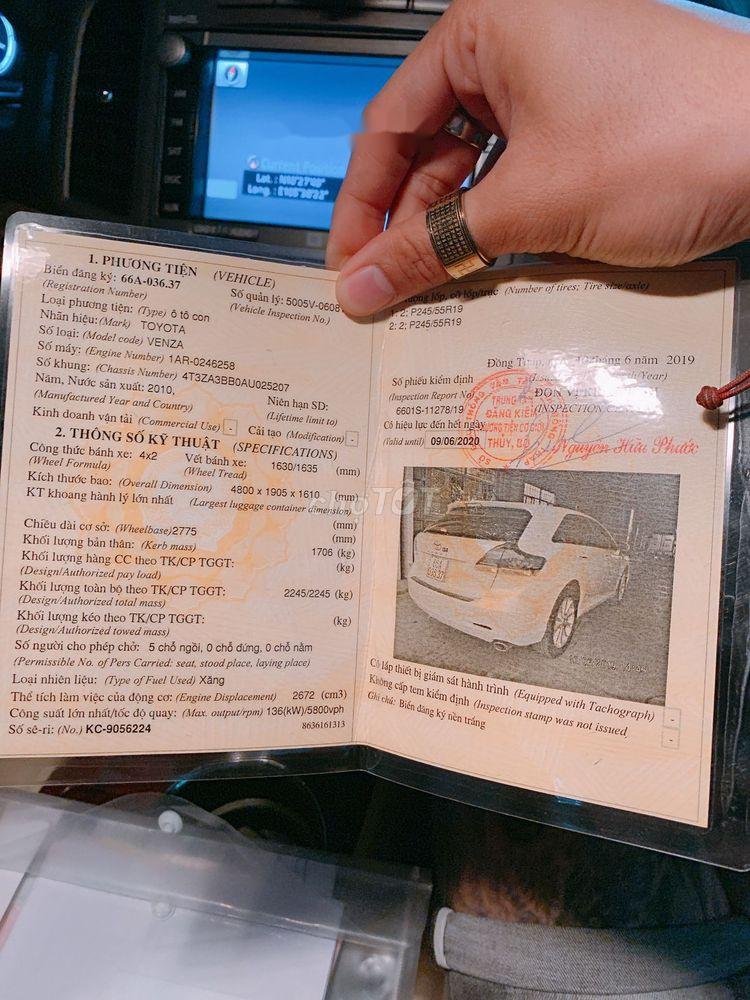 Current Position
Lat. : N10°27'49"
Long. : E105°38'22"
1. PHƯƠNG TIỆN (VEHICLE)
Biển đăng ký: 66A-036.37
(Registration Number)
Số quản lý: 5005V-0608
(Vehicle Inspection No.)
Loại phương tiện: (Type) ô tô con
Nhãn hiệu: (Mark) TOYOTA
Số loại: (Model code) VENZA
Số máy: (Engine Number) 1AR-0246258
Số khung: (Chassis Number) 4T3ZA3BB0AU025207
Năm, Nước sản xuất: 2010,
(Manufactured Year and Country)
Niên hạn SD:
(Lifetime limit to)
Kinh doanh vận tải (Commercial Use) - Cải tạo (Modification) -
2. THÔNG SỐ KỸ THUẬT (SPECIFICATIONS)
Công thức bánh xe: 4x2 Vết bánh xe: 1630/1635 (mm)
(Wheel Formula) (Wheel Tread)
Kích thước bao: (Overall Dimension) 4800 x 1905 x 1610 (mm)
KT khoang hành lý lớn nhất (Largest luggage container dimension)
(mm)
Chiều dài cơ sở: (Wheelbase) 2775 (mm)
Khối lượng bản thân: (Kerb mass) 1706 (kg)
Khối lượng hàng CC theo TK/CP TGGT: (kg)
(Design/Authorized pay load)
Khối lượng toàn bộ theo TK/CP TGGT: 2245/2245 (kg)
(Design/Authorized total mass)
Khối lượng kéo theo TK/CP TGGT: (kg)
(Design/Authorized towed mass)
Số người cho phép chở: 5 chỗ ngồi, 0 chỗ đứng, 0 chỗ nằm
(Permissible No. of Pers Carried: seat, stood place, laying place)
Loại nhiên liệu: (Type of Fuel Used) Xăng
Thể tích làm việc của động cơ: (Engine Displacement) 2672 (cm3)
Công suất lớn nhất/tốc độ quay: (Max. output/rpm) 136(kW)/5800vph
Số sê-ri: (No.) KC-9056224 8636161313
lốp, cỡ lốp/trục (Number of tires; Tire size/axle)
1: 2; P245/55R19
2: 2; P245/55R19
Đồng Tháp, 6 năm 2019
Số phiếu kiểm định
(Inspection Report No)
6601S-11278/19
Có hiệu lực đến hết ngày
(Valid until) 09/06/2020
ĐƠN VỊ
(INSPECTION
TRUNG
ĐĂNG KIỂM
PHƯƠNG TIỆN CƠ GIỚI
THỦY, BỘ
Nguyễn Hữu Phước
chợ TỐT
Có lắp thiết bị giám sát hành trình (Equipped with Tachograph) -
Không cấp tem kiểm định (Inspection stamp was not issued -
Ghi chú: Biển đăng ký nền trắng